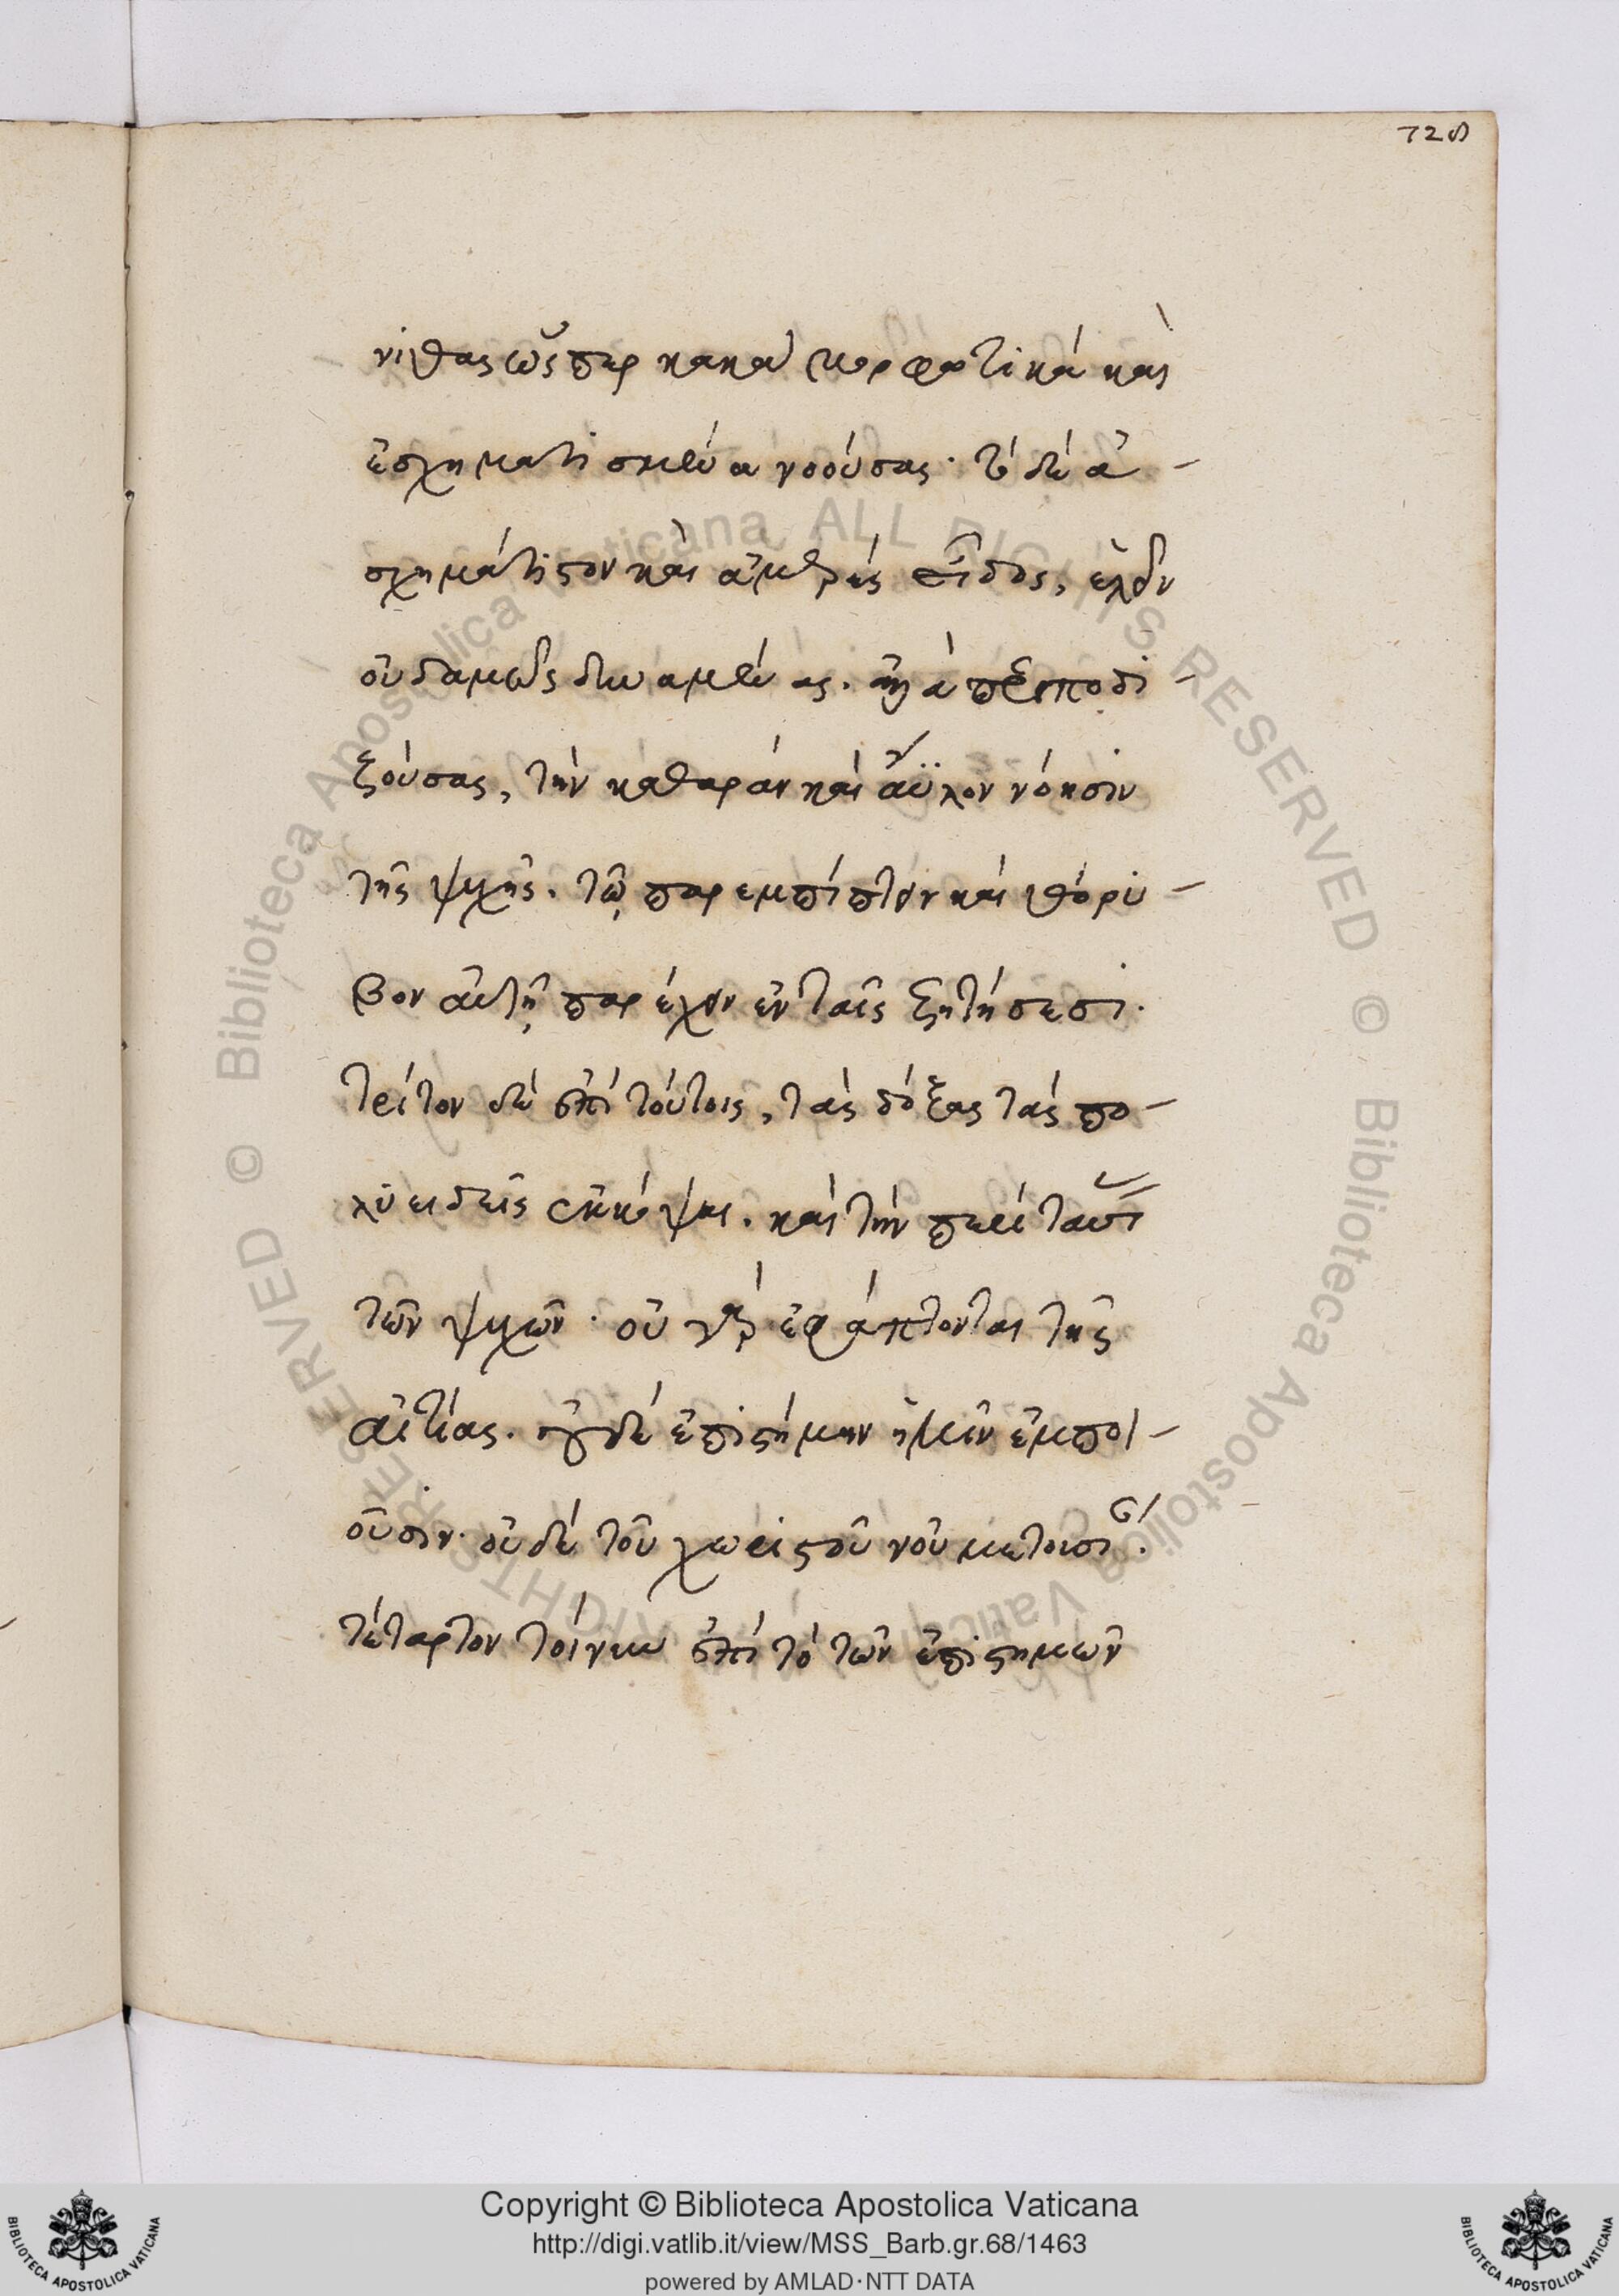 728
νιθας ὥσπερ κακα μορφωτικὰ καὶ
ἐσχηματισμένα νοούσας· τὸ δὲ ἀ-
σχημάτιστον καὶ ἀμερὲς εἶδος, ἑλεῖν
οὐδαμῶς δυναμένας. ἀλλὰ προσποδι-
ζούσας, τὴν καθαρὰν καὶ ἄϋλον νόησιν
τῆς ψυχῆς. τῷ παρεμπίπτειν καὶ θόρυ-
βον αὐτῇ παρέχειν ἐν ταῖς ζητήσεσι.
τρίτον δὲ ἐπὶ τούτοις, τὰς δόξας τὰς πο-
λυειδεῖς ἐκκόψαι. καὶ τὴν περὶ ταῦτα
τῶν ψυχῶν. οὐ γὰρ ἐφάπτονται τῆς
αἰτίας. οὐδὲ ἐπιστήμην ἡμῖν ἐμποι-
οῦσιν. οὐδὲ τοῦ χωριστοῦ νοῦ μετουσί.
τέταρτον τοίνυν ἐπὶ τὸ τῶν ἐπιστημῶν
Copyright © Biblioteca Apostolica Vaticana
http://digi.vatlib.it/view/MSS_Barb.gr.68/1463
powered by AMLAD·NTT DATA